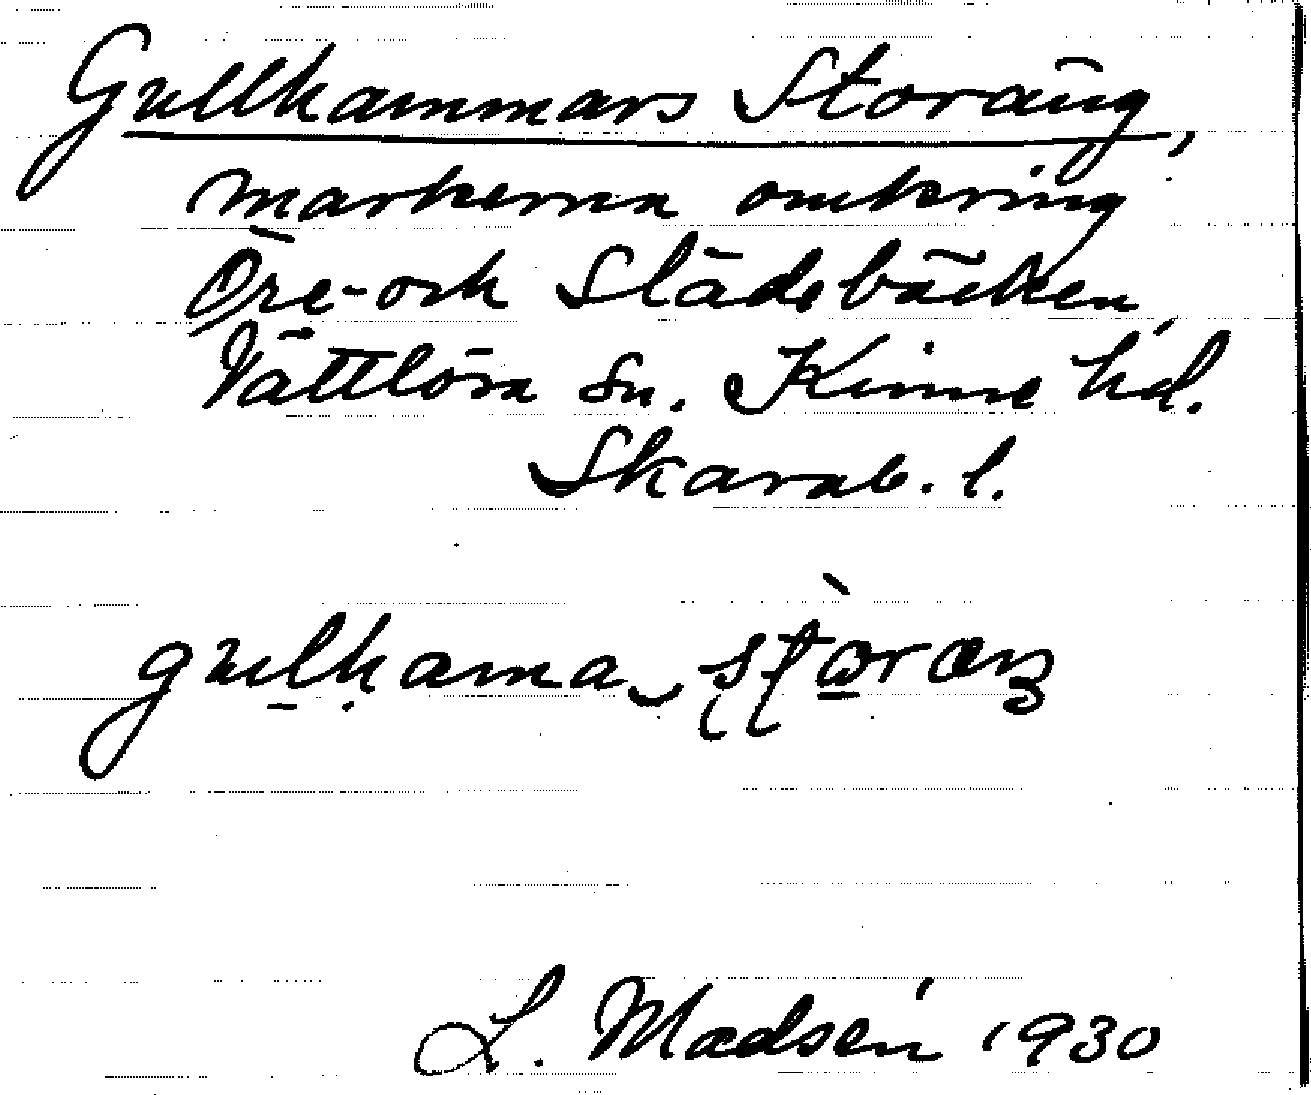 Gullhammars Storäng,
markerna omkring
Öre- och Slädebäcken,
Vättlösa sn. Kinne hd.
Skarab. l.
L. Madsén 1930